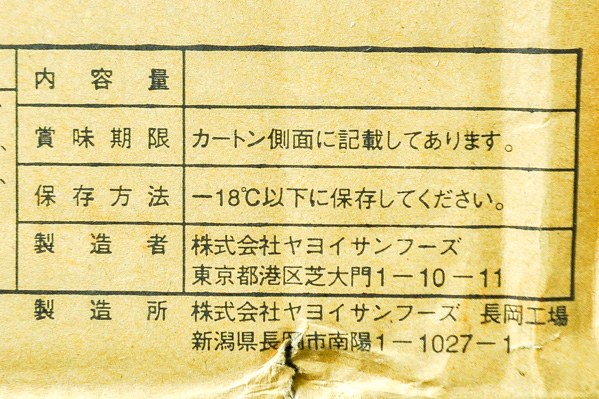 内容量
賞味期限 カートン側面に記載してあります。
保存方法 −18℃以下に保存してください。
製造者 株式会社ヤヨイサンフーズ
東京都港区芝大門1−10−11
製造所 株式会社ヤヨイサンフーズ 長岡工場
新潟県長岡市南陽1−1027−1